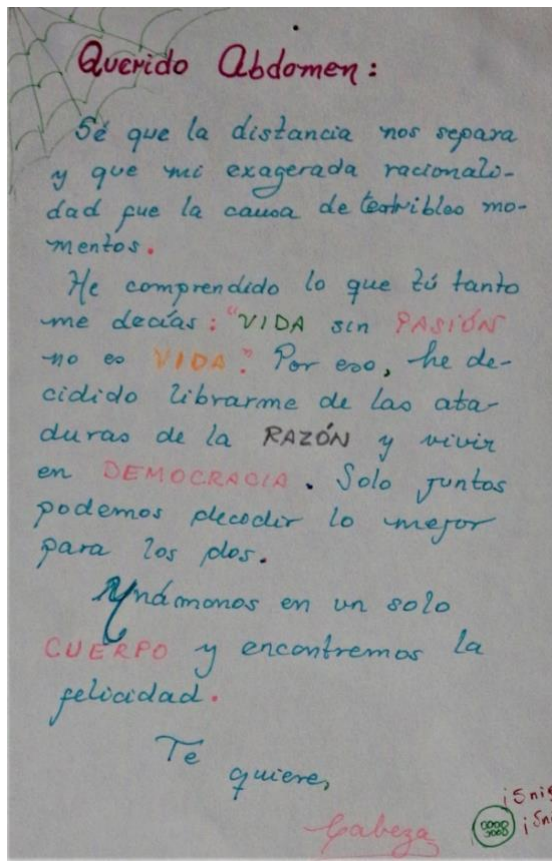 Querido Abdomen:
Sé que la distancia nos separa
y que mi exagerada racionali-
dad fue la causa de terribles mo-
mentos.
He comprendido lo que tú tanto
me decías: "VIDA sin PASIÓN
no es VIDA". Por eso, he de-
cidido librarme de las ata-
duras de la RAZÓN y vivir
en DEMOCRACIA. Solo juntos
podemos decidir lo mejor
para los dos.
Unámonos en un solo
CUERPO y encontremos la
felicidad.
Te
quiere,
Cabeza